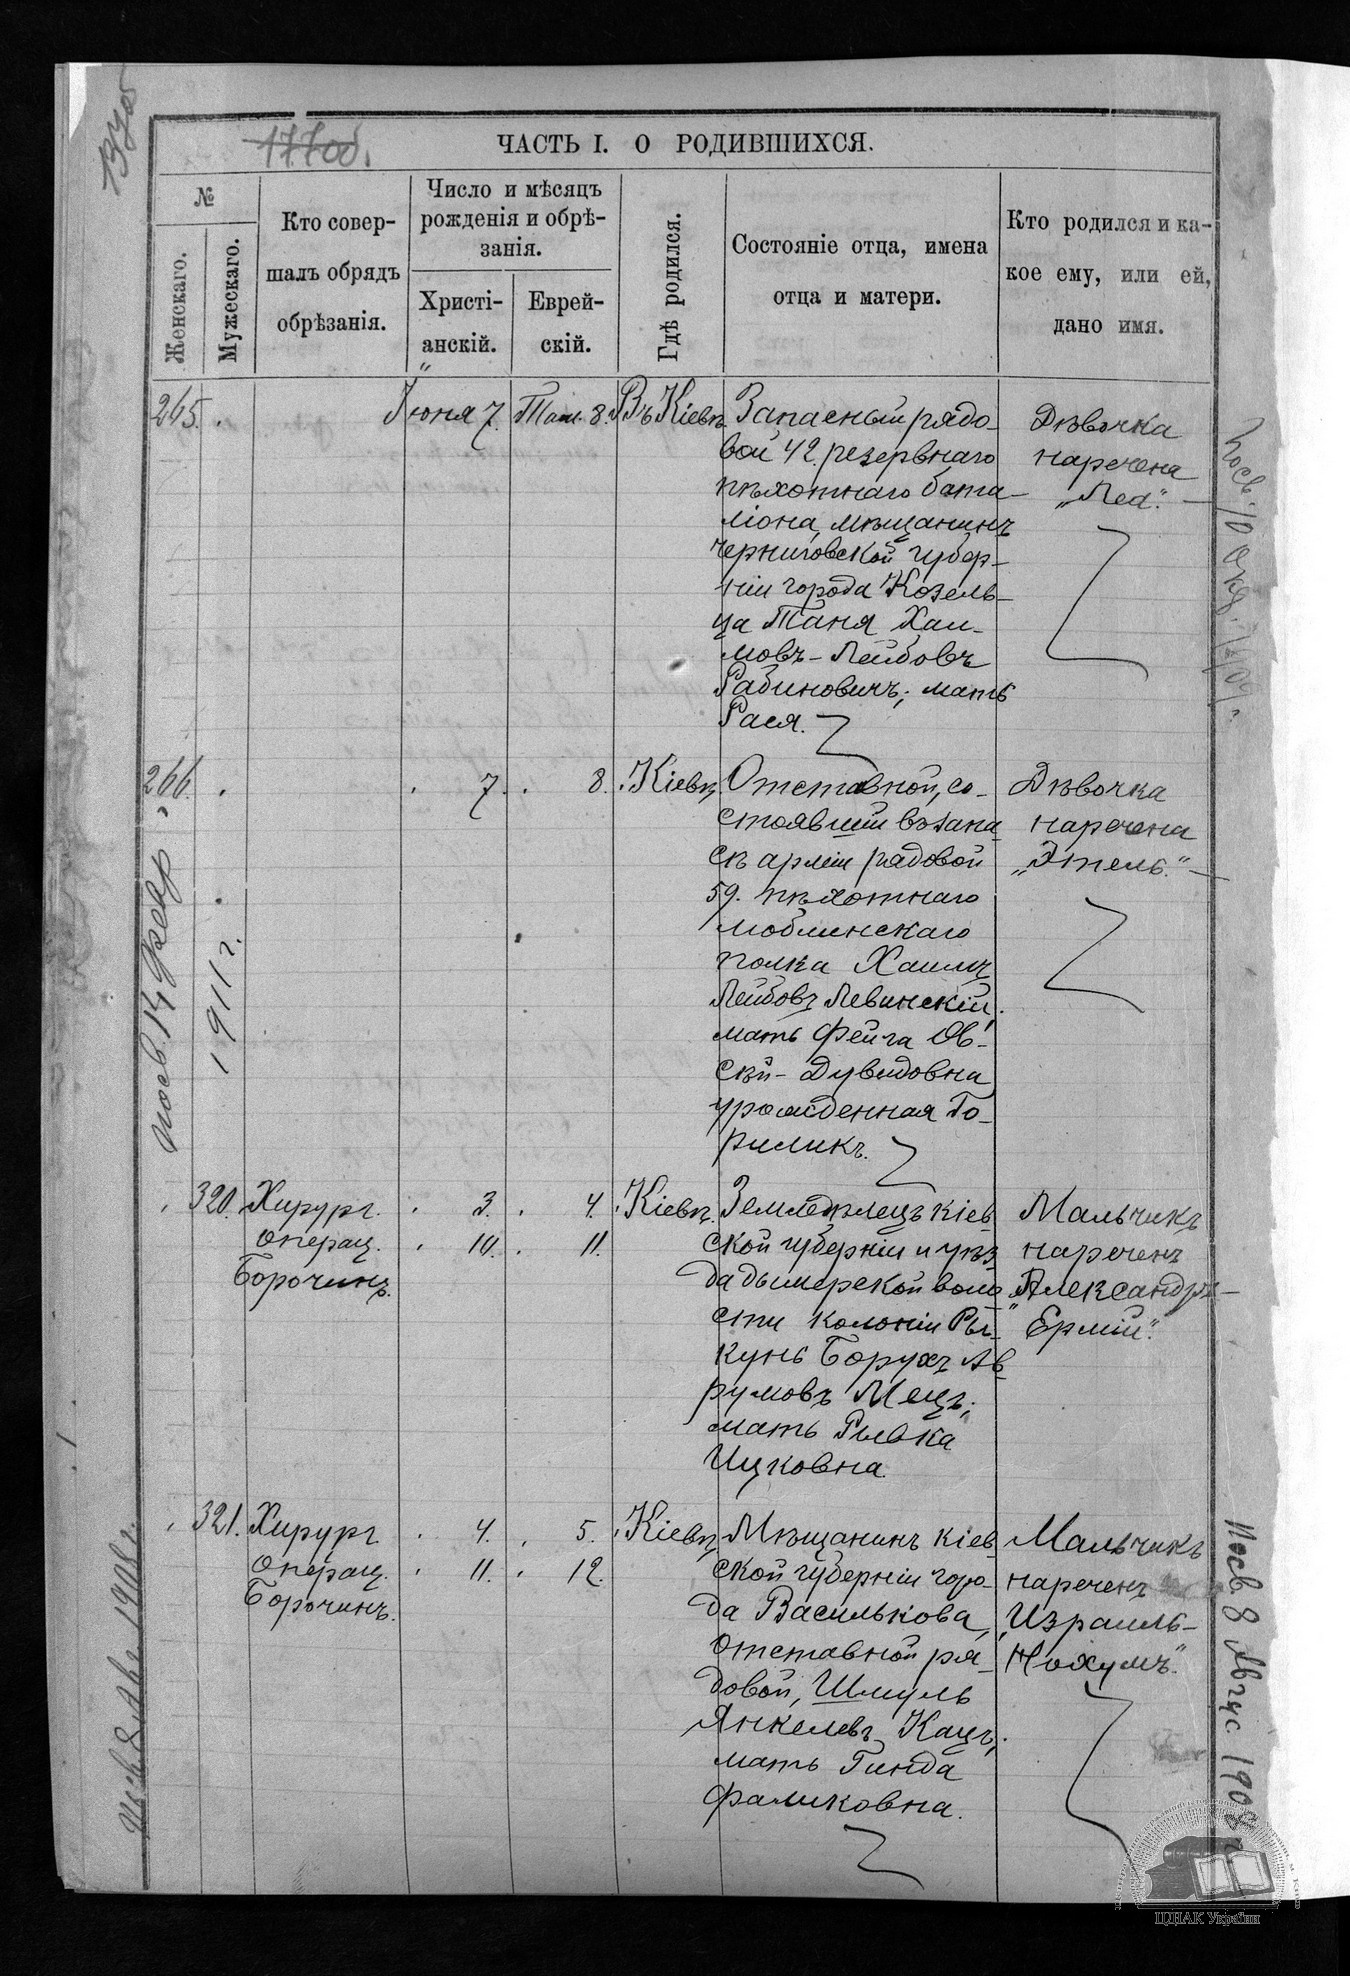 177об.
ЧАСТЬ I. О РОДИВШИХСЯ.
№
Женскаго.
Мужескаго.
Кто совер-
шалъ обрядъ
обрѣзанія.
Число и мѣсяцъ
рожденія и обрѣ-
занія.
Христі-
анскій.
Еврей-
скій.
Гдѣ родился.
Состояніе отца, имена
отца и матери.
Кто родился и ка-
кое ему, или ей,
дано имя.
265. Іюня 7. Там. 8. Въ Кіевѣ
Запасный рядо-
вой 42 резервнаго
пѣхотнаго бата-
ліона, мѣщанинъ
черниговской губер-
ніи города Козель-
ца Таня Хаи-
мовъ-Лейбовъ
Рабиновичъ; мать
Рася.
Дѣвочка
наречена
„Леа".
266. 7. 8. Кіевѣ
Отставной, со-
стоявшій въ запа-
сѣ арміи рядовой
59. пѣхотнаго
люблинскаго
полка Хаимъ
Лейбовъ Левинскій,
мать Фейга Ов-
сѣй-Дувидовна
урожденная Го-
риликъ.
Дѣвочка
наречена
„Этель."
320. Хирург. 3. 4. Кіевѣ.
операц. 10. 11.
Борочинъ.
Земледѣлецъ кіев
ской губерніи и уѣз
да дымерской воло
сти колоніи Ры-
кунь Борухъ Ав
румовъ Мецъ;
мать Рывка
Ицковна.
Мальчикъ
нареченъ
„Александръ-
Ермій".
321. Хирург 4. 5. Кіевѣ
операц. 11. 12.
Борочинъ.
Мѣщанинъ кіев
ской губерніи горо-
да Василькова,
отставной ря-
довой, Шмуль
Янкелевъ Кацъ,
мать Гинда
Фаликовна.
Мальчикъ
нареченъ
„Израиль-
Нохумъ".
посв. 14 февр.
1911 г.
Посв 8 Авг 1908 г.
Посв. 10 окт. 1909 г.
Посв 8 Авгус 1908 г
ЦДІАК України